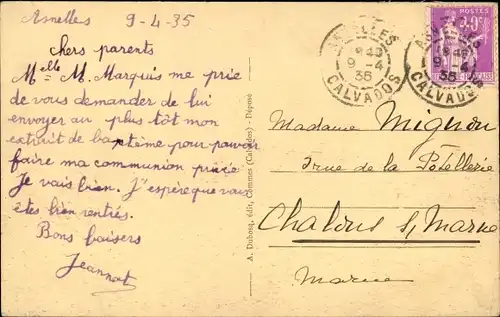 Asnelles 9-4-35
chers parents
Melle M. Marquis me prie
de vous demander de lui
envoyer au plus tôt mon
extrait de baptème pour pouvoir
faire ma communion privée
Je vais bien. J'espère que vous
êtes bien rentrés.
Bons baisers
Jeannot
A. Dubosq, édit, Commes (Calvados) - Déposé
ASNELLES
9-4
35
CALVADOS
9-4
35
CALVADOS
POSTES
Madame Mignon
rue de la Potellerie
Chalons s/ Marne
Marne